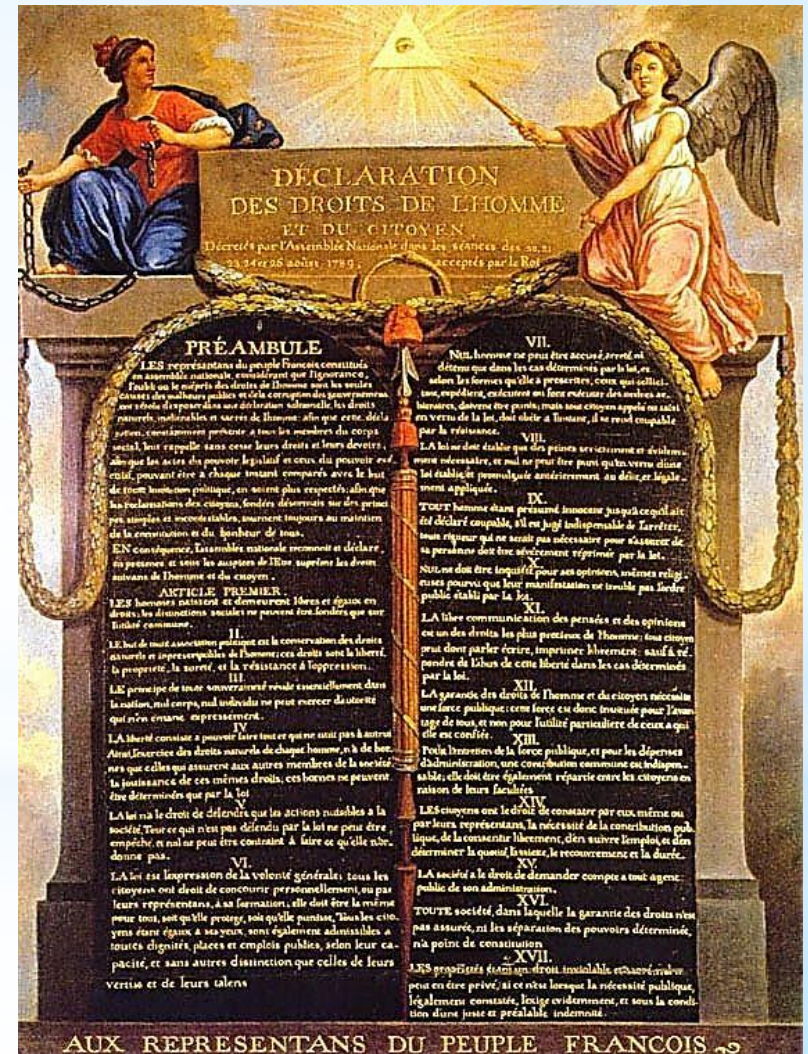 DÉCLARATION
DES DROITS DE L'HOMME
ET DU CITOYEN,
Décretés par l'Assemblée Nationale dans les séances des 20, 21
23, 24 et 26 aoûst 1789, acceptés par le Roi
PRÉAMBULE
LES représentans du peuple Francois constitués
en assemblée nationale, considérant que l'ignorance,
l'oubli ou le mépris des droits de l'homme sont les seules
causes des malheurs publics et de la corruption des gouvernemens
ont résolu d'exposer dans une déclaration solemnelle, les droits
naturels, inaliénables et sacrés de l'homme: afin que cette décla
ration, constamment présente a tous les membres du corps
social, leur rappelle sans cesse leurs droits et leurs devoirs;
afin que les actes du pouvoir législatif et ceux du pouvoir exé
cutif, pouvant être a chaque instant comparés avec le but
de toute institution politique, en soient plus respectés; afin que
les réclamations des citoyens, fondées désormais sur des princi
pes simples et incontestables, tournent toujours au maintien
de la constitution et du bonheur de tous.
EN conséquence, l'assemblée nationale reconnoit et déclare,
en présence et sous les auspices de l'Etre suprême les droits
suivans de l'homme et du citoyen.
ARTICLE PREMIER.
LES hommes naissent et demeurent libres et égaux en
droits; les distinctions sociales ne peuvent être fondées que sur
l'utilité commune.
II.
LE but de toute association politique est la conservation des droits
naturels et inprescriptibles de l'homme; ces droits sont la liberté,
la propriété, la sureté, et la résistance à l'oppression.
III.
LE principe de toute souveraineté réside essentiellement dans
la nation, nul corps, nul individu ne peut exercer d'autorité
qui n'en émane expressement.
IV.
LA liberté consiste a pouvoir faire tout ce qui ne nuit pas à autrui
Ainsi, l'exercice des droits naturels de chaque homme, n'a de bor
nes que celles qui assurent aux autres membres de la société
la jouissance de ces mêmes droits; ces bornes ne peuvent
être déterminées que par la loi
V.
LA loi n'a le droit de défendre que les actions nuisibles à la
société. Tout ce qui n'est pas défendu par la loi ne peut être
empêché, et nul ne peut être contraint à faire ce qu'elle n'or
donne pas.
VI.
LA loi est l'expression de la volonté générale; tous les
citoyens ont droit de concourir personnellement, ou par
leurs représentans, à sa formation; elle doit être la même
pour tous, soit qu'elle protege, soit qu'elle punisse, Tous les cito
yens étant égaux à ses yeux, sont également admissibles a
toutes dignités, places et emplois publics, selon leur ca-
pacité, et sans autres distinction que celles de leurs
vertus et de leurs talens
VII.
NUL homme ne peut être accusé, arreté, ni
détenu que dans les cas déterminés par la loi, et
selon les formes qu'elle à prescrites, ceux qui sollici-
tent, expédient, exécutent ou font exécuter des ordres ar-
bitraires, doivent être punis; mais tout citoyen appelé ou saisi
en vertu de la loi, doit obéir a l'instant, il se rend coupable
par la résistance.
VIII.
LA loi ne doit établir que des peines strictement et évidem-
ment nécessaire, et nul ne peut être puni qu'en vertu d'une
loi établie, et promulguée antérierement au délit, et légale-
ment appliquée.
IX.
TOUT homme étant présumé innocent jusqu'à ce qu'il ait
été déclaré coupable, s'il est jugé indispensable de l'arrêter,
tous rigueur qui ne serait pas nécessaire pour s'assurer de
sa personne doit être sévèrement réprimée par la loi.
X.
NUL ne doit être inquiété pour ses opinions, mêmes religi-
euses pourvu que leur manifestation ne trouble pas l'ordre
public établi par la loi.
XI.
LA libre communication des pensées et des opinions
est un des droits les plus précieux de l'homme; tout citoyen
peut dont parler écrire, imprimer librement: sauf à ré-
pondre de l'abus de cette liberté dans les cas déterminés
par la loi.
XII.
LA garantie des droits de l'homme et du citoyen nécessite
une force publique; cette force est donc instituée pour l'avan
tage de tous, et non pour l'utilité particuliere de ceux a qui
elle est confiée.
XIII.
Pour l'entretien de la force publique, et pour les dépenses
d'administration, une contribution commune est indispen-
sable; elle doit être également répartie entre les citoyens en
raison de leurs facultées
XIV.
LES citoyens ont le droit de constater par eux même ou
par leurs représentans, la nécessité de la contribution pub
lique, de la consentir librement, d'en suivre l'emploi, et d'en
déterminer la quotité, l'assiete, le recouvrement et la durée.
XV.
LA société a le droit de demander compte a tout agent
public de son administration.
XVI.
TOUTE société, dans laquelle la garantie des droits n'est
pas assurée, ni les séparation des pouvoirs déterminée,
n'a point de constitution
XVII.
LES propriétés étant un droit inviolable et sacré, nul ne
peut en être privé, si ce n'est lorsque la nécessité publique,
légalement constatée, l'exige evidemment, et sous la condi-
tion d'une juste et préalable indemnité.
AUX REPRESENTANS DU PEUPLE FRANCOIS